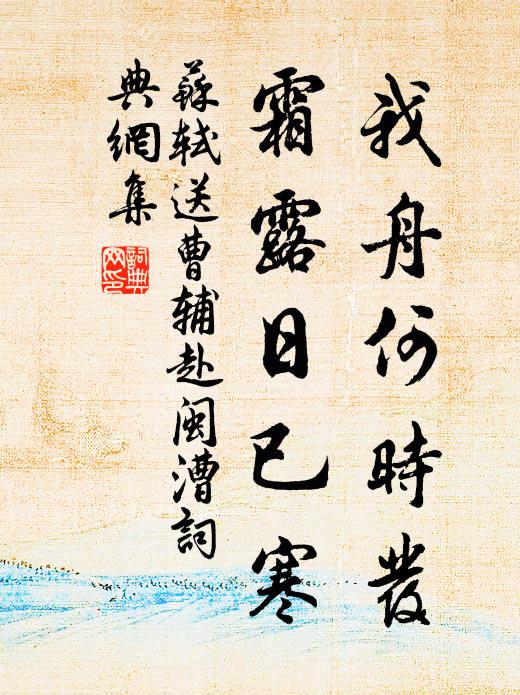 我舟何時發
霜露日已寒
蘇軾送曹輔赴閩漕詞
典網集
詞典網印